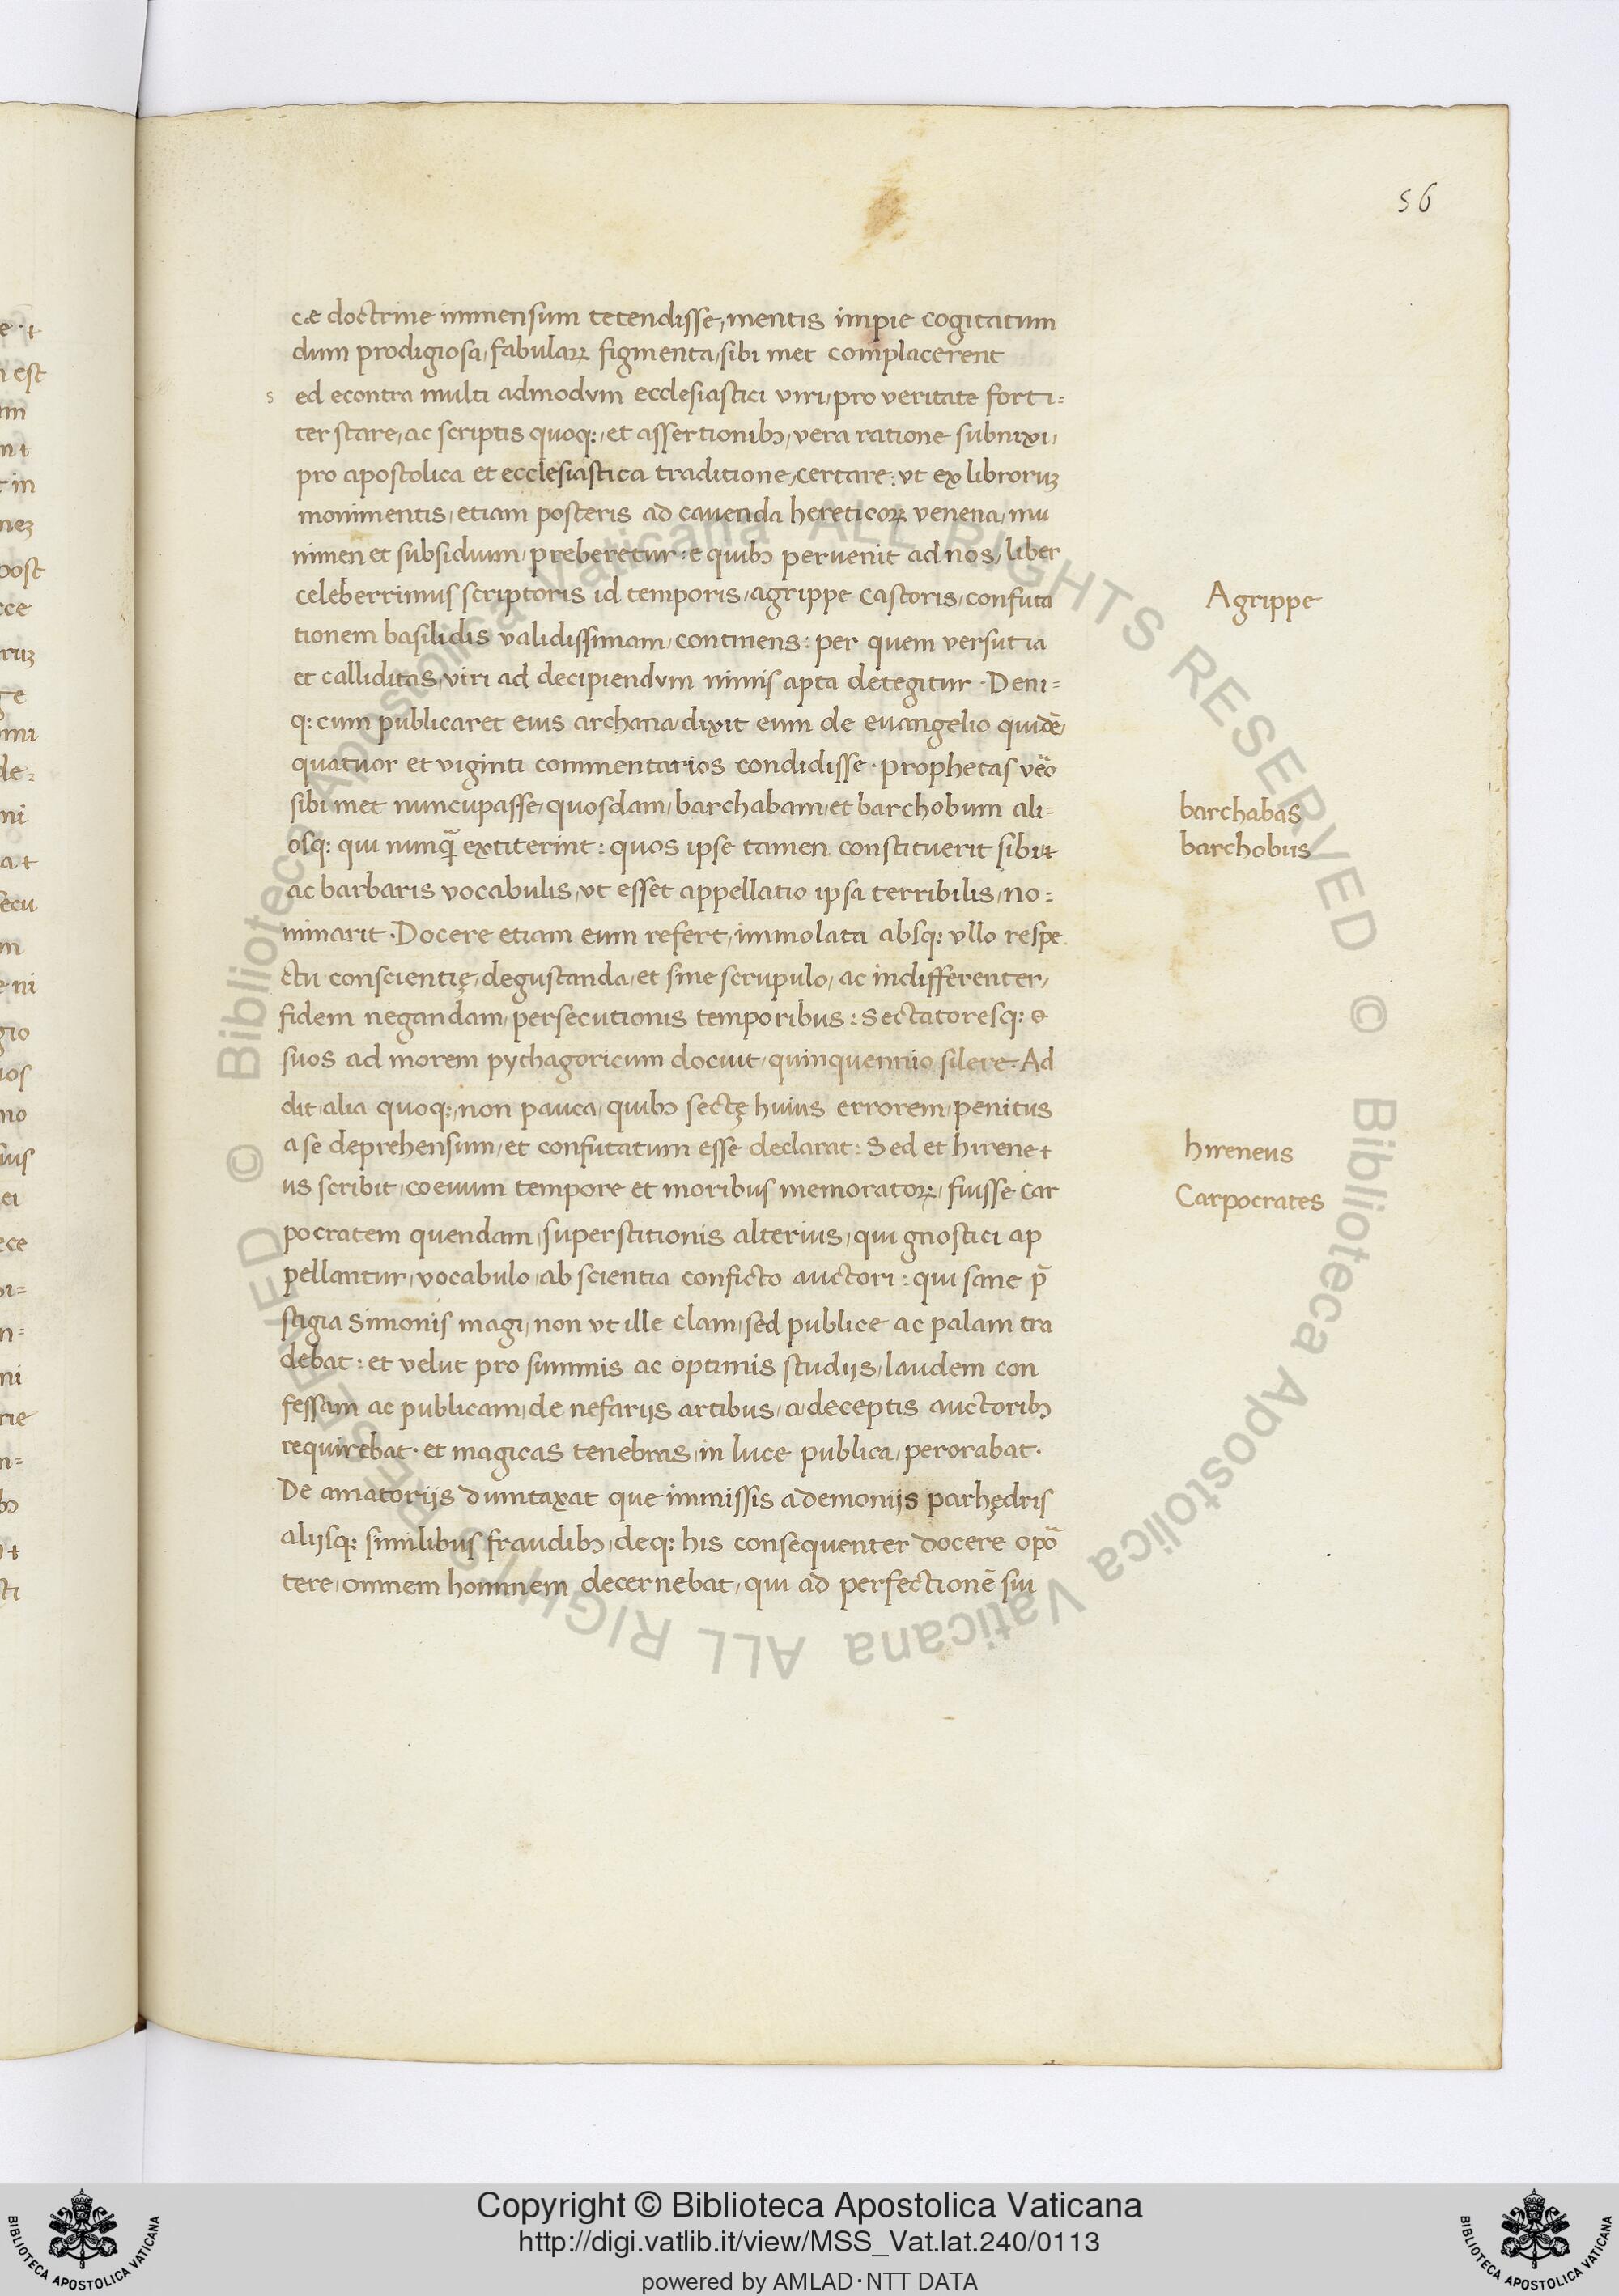 56
cæ doctrine immensum tetendisse, mentis impie cogitatum
dum prodigiosa, fabulaꝝ figmenta, sibi met complacerent
s ed econtra multi admodum ecclesiastici viri, pro veritate forti=
ter stare, ac scriptis quoq:, et assertionibꝫ, vera ratione subnixi,
pro apostolica et ecclesiastica traditione, certare: ut ex libroruꝫ
monimentis, etiam posteris ad cavenda hereticoꝝ venena, mu
nimen et subsidium, preberetur: e quibꝫ pervenit ad nos, liber
celeberrimus scriptoris id temporis, agrippe castoris, confuta
Agrippe
tionem basilidis validissimam, continens: per quem versutia
et calliditas, viri ad decipiendum nimis apta detegitur. Deni=
q: cum publicaret eius archana, dixit eum de euangelio quidē,
quatuor et viginti commentarios condidisse. prophetas vēo
sibi met nuncupasse, quosdam, barchabam, et barchobum ali=
barchabas
osq: qui nunqᷓ extiterint: quos ipse tamen constituerit sibi,
barchobus
ac barbaris vocabulis, ut esset appellatio ipsa terribilis, no=
minarit. Docere etiam eum refert, immolata absq: ullo respe
ctu conscientię, degustanda, et sine scrupulo, ac indifferenter,
fidem negandam, persecutionis temporibus: Sectatoresq: &
suos ad morem pythagoricum docuit, quinquennio silere. Ad
dit, alia quoq:, non pauca, quibꝫ sectę huius errorem, penitus
a se deprehensum, et confutatum esse declarat: Sed et hirene
hireneus
us scribit, coeuum tempore et moribus memoratoꝝ, fuisse car
Carpocrates
pocratem quendam, superstitionis alterius, qui gnostici ap
pellantur, vocabulo, ab scientia conficto auctori: qui sane p̄
stigia Simonis magi, non ut ille clam, sed publice ac palam tra
debat: et velut pro summis ac optimis studijs, laudem con
fessam ac publicam, de nefarijs artibus, a deceptis auctoribꝫ
requirebat. et magicas tenebras, in luce publica, perorabat.
De amatorijs dumtaxat que immissis a demonijs parhędris
alijsq: similibus fraudibꝫ, deq: his consequenter docere opō
tere, omnem hominem decernebat, qui ad perfectionē sui
© Biblioteca Apostolica Vaticana ALL RIGHTS RESERVED © Biblioteca Apostolica Vaticana ALL RIGHTS RESERVED
Copyright © Biblioteca Apostolica Vaticana
http://digi.vatlib.it/view/MSS_Vat.lat.240/0113
powered by AMLAD·NTT DATA
BIBLIOTECA APOSTOLICA VATICANA
BIBLIOTECA APOSTOLICA VATICANA